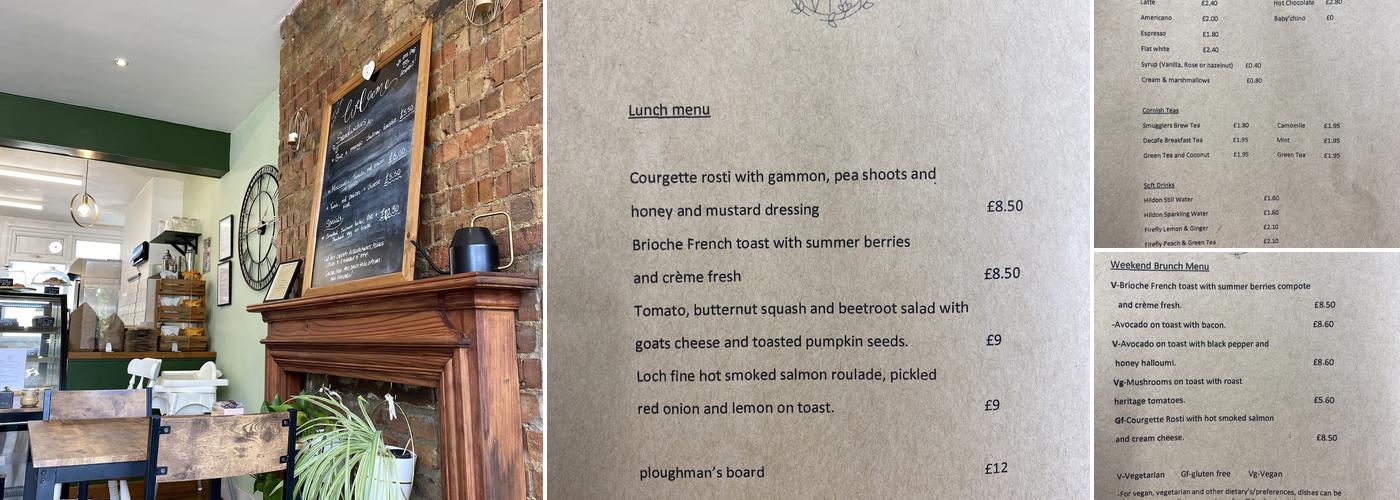 Welcome
Sandwiches
£5.50
£6.00
£5.50
Specials
£10.50
Lunch menu
Courgette rosti with gammon, pea shoots and
honey and mustard dressing £8.50
Brioche French toast with summer berries
and crème fresh £8.50
Tomato, butternut squash and beetroot salad with
goats cheese and toasted pumpkin seeds. £9
Loch fine hot smoked salmon roulade, pickled
red onion and lemon on toast. £9
ploughman's board £12
Latte £2.40 Hot Chocolate £2.80
Americano £2.00 Baby'chino £0
Espresso £1.80
Flat white £2.40
Syrup (Vanilla, Rose or hazelnut) £0.40
Cream & marshmallows £0.80
Cornish Teas
Smugglers Brew Tea £1.80 Camomile £1.95
Decafe Breakfast Tea £1.95 Mint £1.95
Green Tea and Coconut £1.95 Green Tea £1.95
Soft Drinks
Hildon Still Water £1.60
Hildon Sparkling Water £1.60
Firefly Lemon & Ginger £2.10
Firefly Peach & Green Tea £2.10
Weekend Brunch Menu
V-Brioche French toast with summer berries compote
and crème fresh. £8.50
-Avocado on toast with bacon. £8.60
V-Avocado on toast with black pepper and
honey halloumi. £8.60
Vg-Mushrooms on toast with roast
heritage tomatoes. £5.60
Gf-Courgette Rosti with hot smoked salmon
and cream cheese. £8.50
V-Vegetarian Gf-gluten free Vg-Vegan
-For vegan, vegetarian and other dietary's/preferences, dishes can be